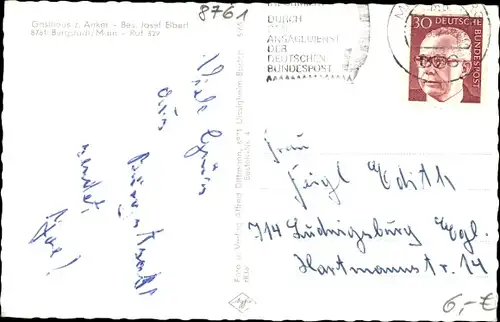 8761
Gasthaus z. Anker - Bes. Josef Elbert
8761 Bürgstadt/Main - Ruf 329
DURCH
ANSAGEDIENST
DER
DEUTSCHEN
BUNDESPOST
30 DEUTSCHE
BUNDESPOST
Viele Grüße
aus
Bürgstadt
sendet
Foto u. Verlag Alfred Dittmann, 6971
Frau
Feigl Edith
714 Ludwigsburg Egl.
Hartmannstr. 14
6,-€